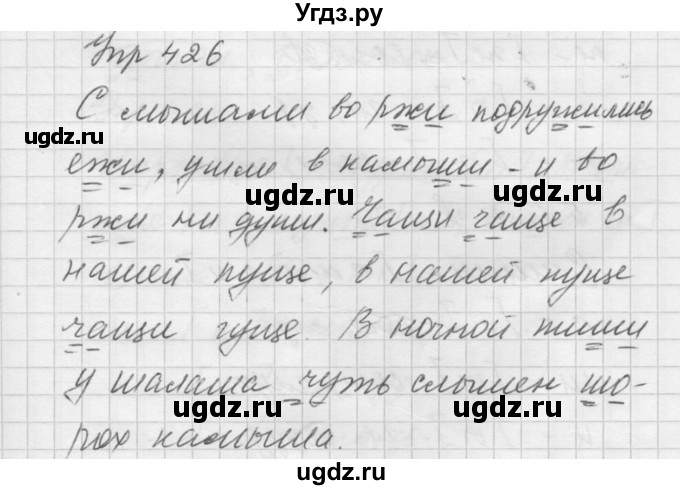 Угдз.ру
Упр 426
С мышами во ржи подружились
ежи, ушли в камыши - и во
ржи ни души. Чащи чаще в
нашей пуще, в нашей пуще
чащи гуще. В ночной тиши
у шалаша чуть слышен шо-
рох камыша.
ugdz.ru
ugdz.ru
ugdz.ru
ugdz.ru
ugdz.ru
ugdz.ru
ugdz.ru
ugdz.ru
ugdz.ru